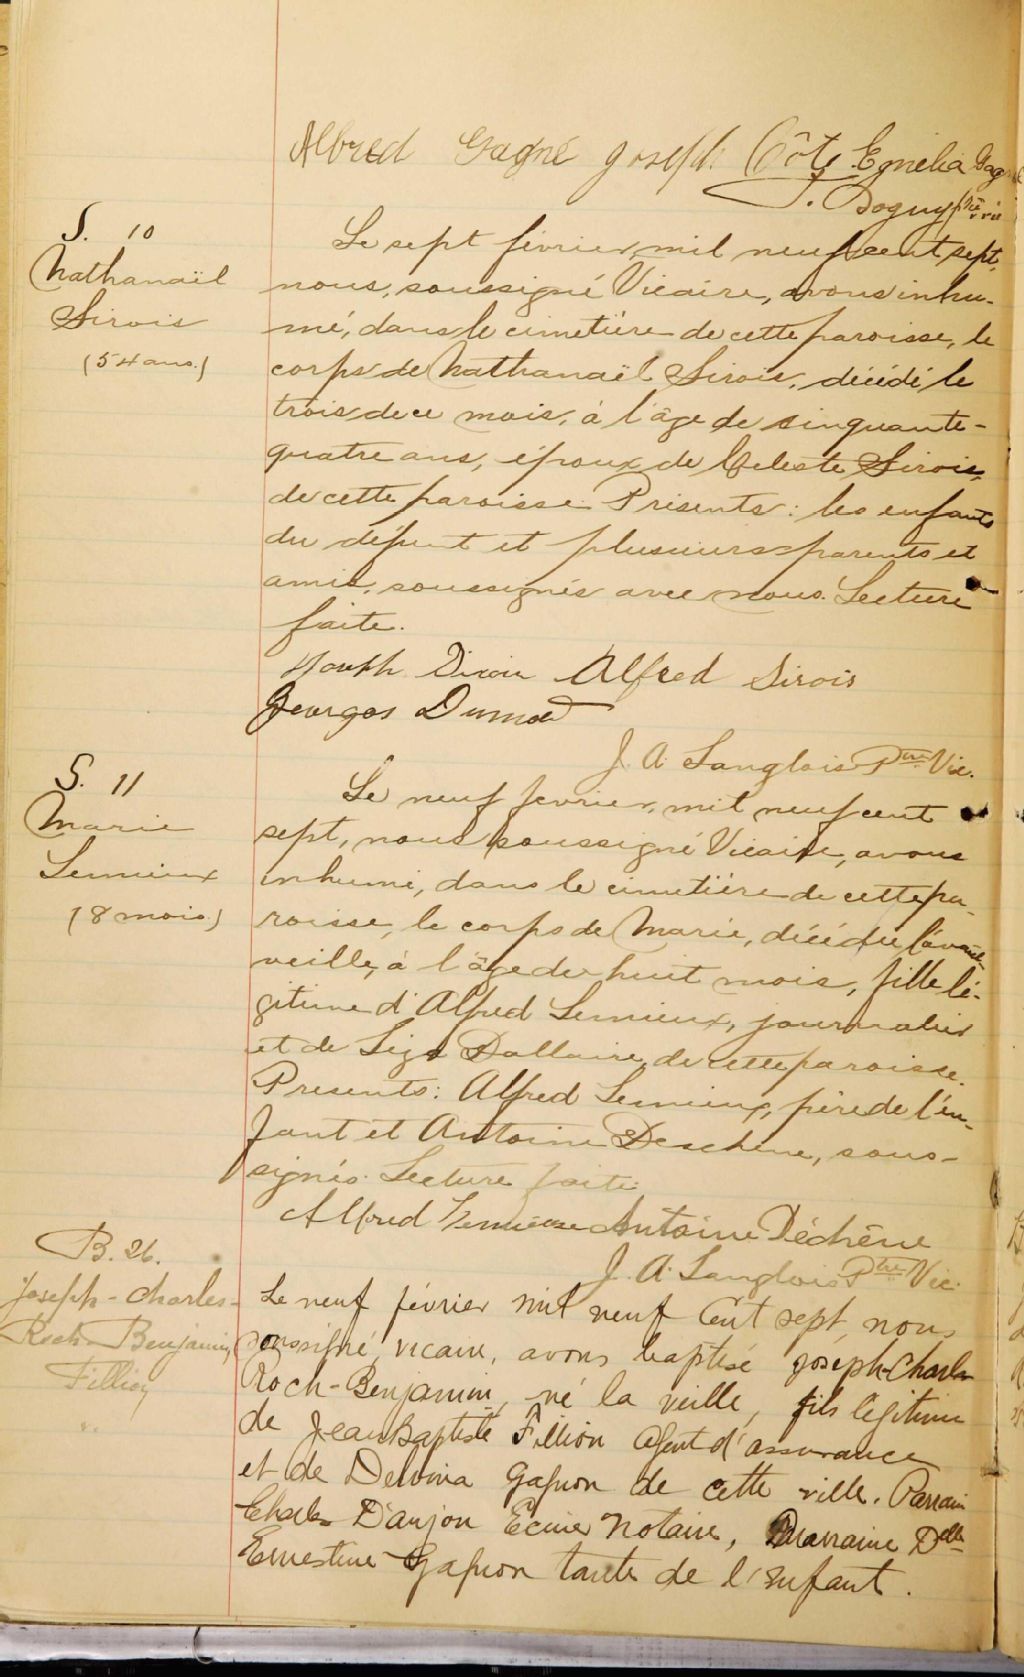 Albred Gagné Joseph Côté Emélia Gag
J. Doguy Ptre v.
S. 10
Nathanaël
Sirois
(54 ans.)
Le sept février, mil neuf cent sept,
nous, soussigné Vicaire, avons inhu-
mé, dans le cimetière de cette paroisse, le
corps de Nathanaël Sirois, décédé le
trois de ce mois, à l'âge de cinquante-
quatre ans, époux de Celeste Sirois,
de cette paroisse. Présents: les enfants
du défunt et plusieurs parents et
amis, soussignés avec nous. Lecture
faite.
Alfred Sirois
Georges Dumod
J. A. Langlois Ptre Vic.
S. 11
Marie
Lemieux
(8 mois.)
Le neuf fevrier, mil neuf cent
sept, nous soussigné Vicaire, avons
inhumé, dans le cimetière de cette pa-
roisse, le corps de Marie, décédée l'avant
veille, à l'âge de huit mois, fille lé-
gitime d'Alfred Lemieux, journalier
et de Liza Dallaire, de cette paroisse.
Presents: Alfred Lemieux, père de l'en-
fant et Antoine Deschene, sous-
signés. Lecture faite.
Alfred Lemieux Antoine Déchêne
J. A. Langlois Ptre Vic.
B. 26.
Joseph-Charles-
Roch-Benjamin,
Fillion
Le neuf février mil neuf cent sept, nous
soussigné, vicaire, avons baptisé Joseph-Charles
Roch-Benjamin, né la veille, fils légitime
de Jean Baptiste Fillion agent d'assurance
et de Delvina Gagnon de cette ville. Parrain
Charles D'anjou Ecuier Notaire, Marraine Delle
Ernestine Gagnon tante de l'enfant.